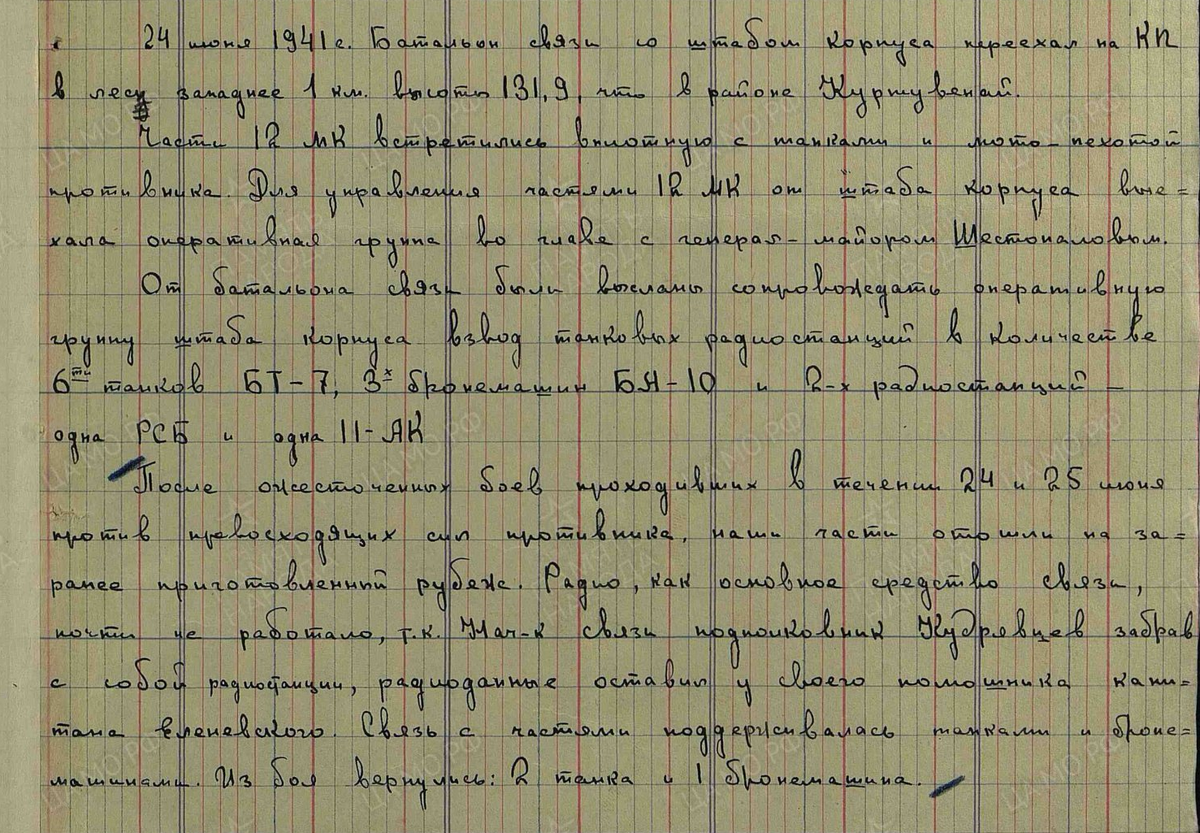 24 июня 1941 г. Батальон связи со штабом корпуса переехал на КП
в лесу западнее 1 км. высоты 131,9, что в районе Куртувенай.
Части 12 МК встретились вплотную с танками и мото-пехотой
противника. Для управления частями 12 МК от штаба корпуса вые=
хала оперативная группа во главе с генерал-майором Шестопаловым.
От батальона связи были высланы сопровождать оперативную
группу штаба корпуса взвод танковых радиостанций в количестве
6ти танков БТ-7, 3х бронемашин БА-10 и 2-х радиостанций –
одна РСБ и одна 11-АК
После ожесточенных боев проходивших в течении 24 и 25 июня
против превосходящих сил противника, наши части отошли на за=
ранее приготовленный рубеж. Радио, как основное средство связи,
почти не работало, т.к. Нач-к связи подполковник Кудрявцев забрав
с собой радиостанции, радиоданные оставил у своего помошника капи=
тана Еленевского. Связь с частями поддерживалась танками и броне=
машинами. Из боя вернулись: 2 танка и 1 бронемашина.